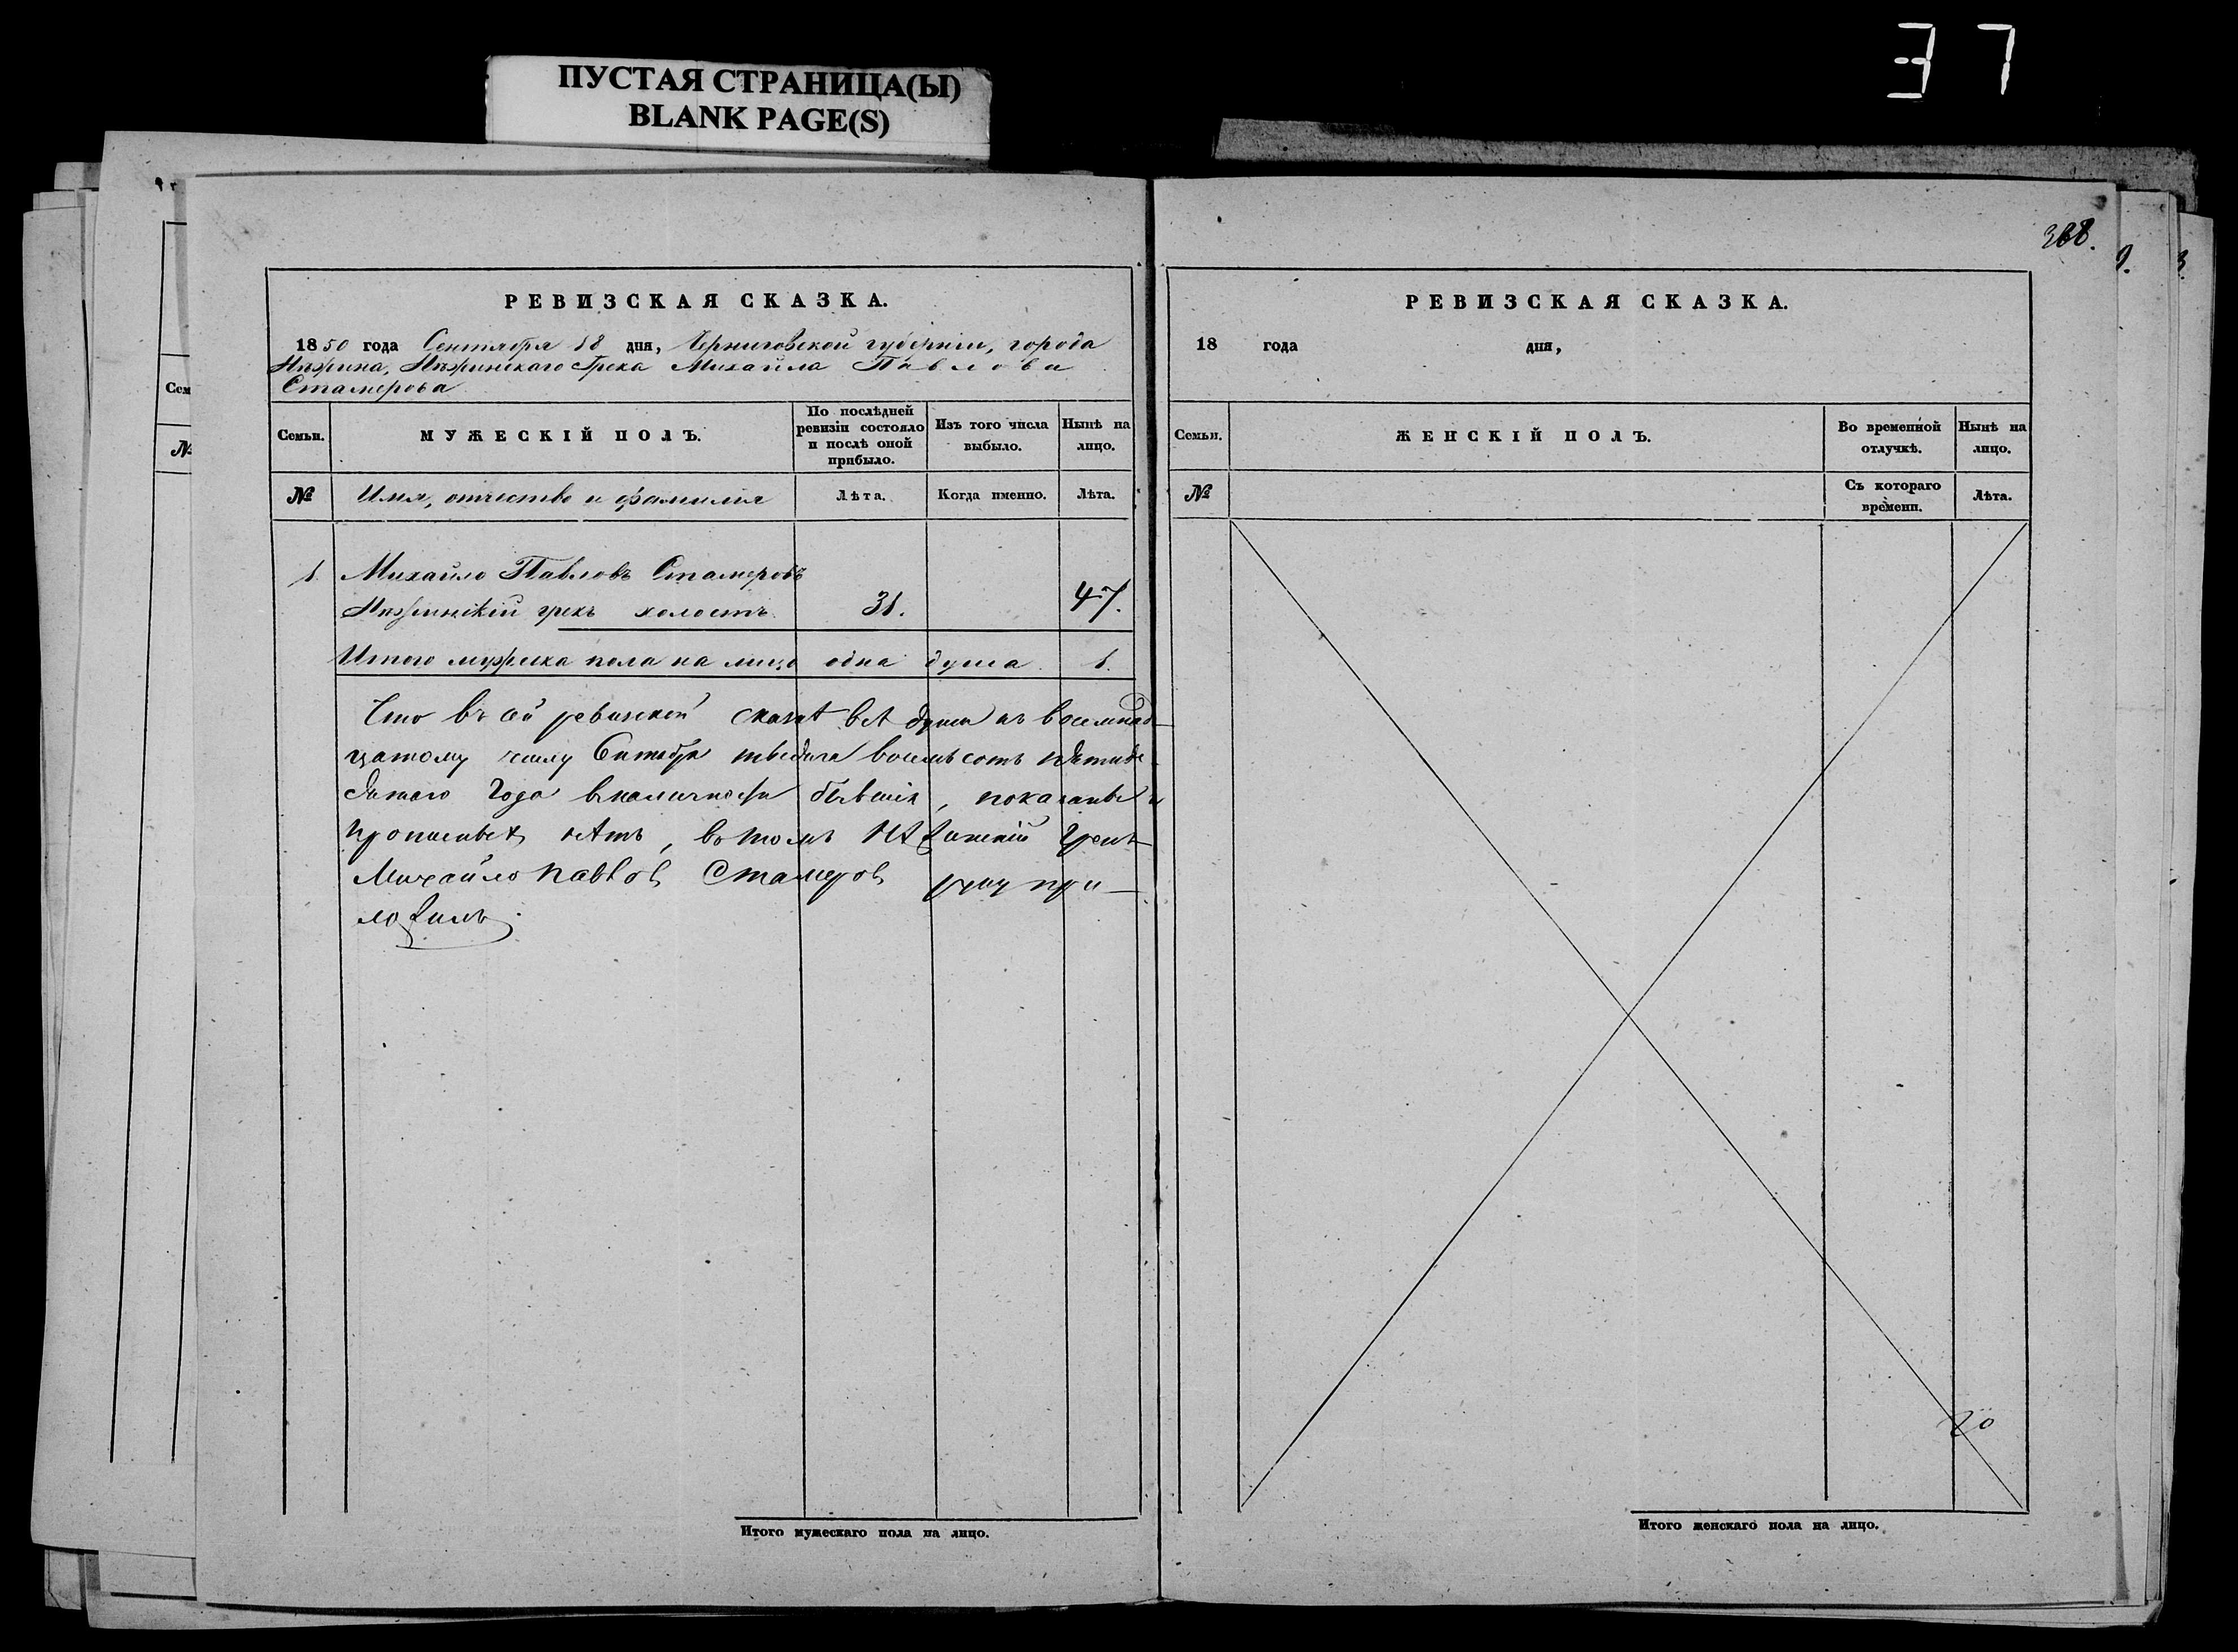 37
ПУСТАЯ СТРАНИЦА(Ы)
BLANK PAGE(S)
368.
РЕВИЗСКАЯ СКАЗКА.
1850 года Сентября 18 дня, Черниговской губерніи, города
Нѣжина, Нѣжинскаго Грека Михайла Павлова
Стамерова
Семьи.
МУЖЕСКІЙ ПОЛЪ.
По послѣдней
ревизіи состояло
и послѣ оной
прибыло.
Изъ того числа
выбыло.
Нынѣ на
лицо.
№
Имя, отчество и фамилия
Лѣта.
Когда именно.
Лѣта.
1. Михайло Павловъ Стамеровъ
Нѣжинскій грекъ холостъ 31. 47.
Итого мужеска пола на лицо одна душа 1.
Что въ сей ревизской сказкѣ всѣ души къ восемнад-
цатому числу Сентября тысяча восемьсотъ пятиде-
сятаго года въ наличности бывшія, показаны и
прописныхъ нѣтъ, въ томъ Нѣжинскій Грекъ
Михайло Павловъ Стамеровъ руку при-
ложилъ
Итого мужескаго пола на лицо.
РЕВИЗСКАЯ СКАЗКА.
18 года дня,
Семьи.
ЖЕНСКІЙ ПОЛЪ.
Во временной
отлучкѣ.
Нынѣ на
лицо.
№
Съ котораго
времени.
Лѣта.
Итого женскаго пола на лицо.
Сем
№